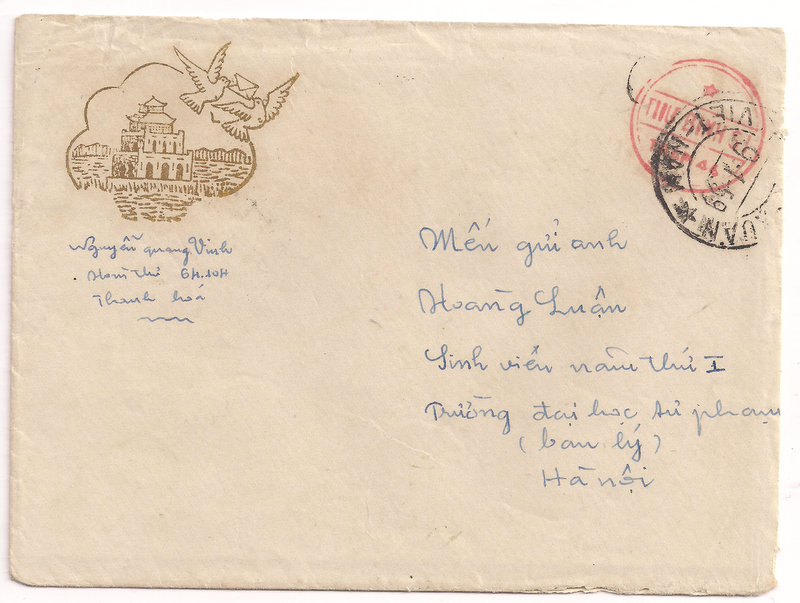 Nguyễn quang Vinh
Hòm thư 6H.10H
Thanh hoá
Mến gửi anh
Hoàng Luận
Sinh viên năm thứ I
Trường đại học sư phạm
(ban lý)
Hà nội
VIỆT NAM